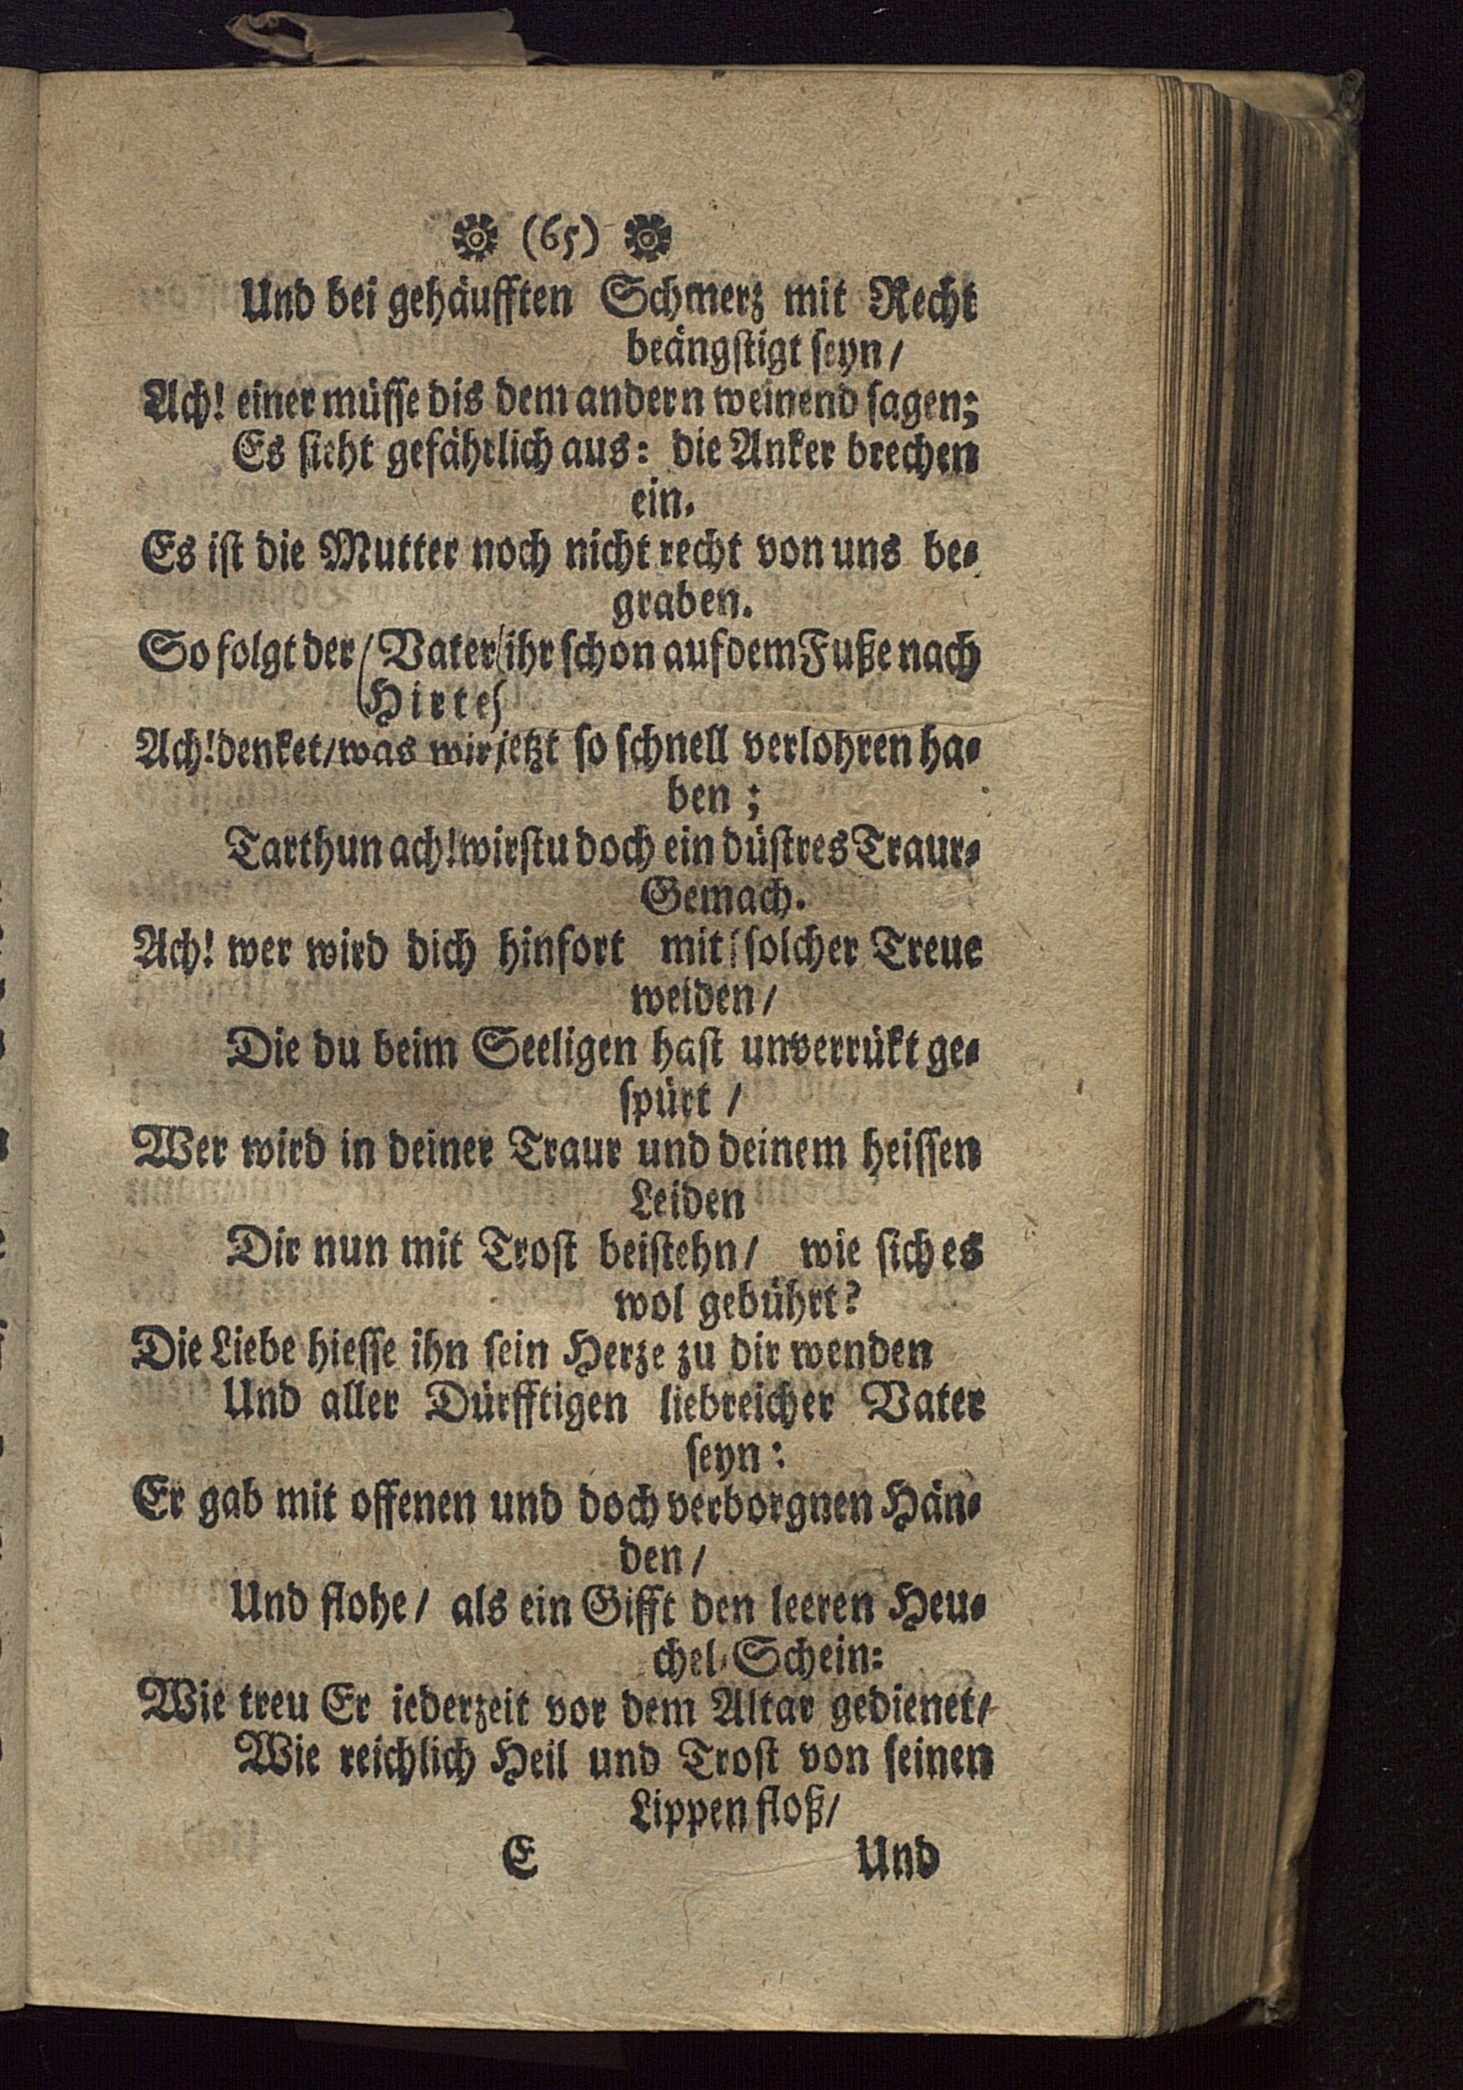 (65)
Und bei gehäufften Schmerz mit Recht
beängſtigt ſeyn/
Ach! einer müſſe dis dem andern weinend ſagen;
Es ſieht gefährlich aus: die Anker brechen
ein.
Es iſt die Mutter noch nicht recht von uns be-
graben.
So folgt der (Vater) ihr ſchon auf dem Fuße nach
(Hirte)
Ach! denket/ was wir jetzt ſo ſchnell verlohren ha-
ben;
Tarthun ach! wirſtu doch ein düſtres Traur-
Gemach.
Ach! wer wird dich hinfort mit ſolcher Treue
weiden/
Die du beim Seeligen haſt unverrükt ge-
ſpürt/
Wer wird in deiner Traur und deinem heiſſen
Leiden
Dir nun mit Troſt beiſtehn/ wie ſich es
wol gebührt?
Die Liebe hieſſe ihn ſein Herze zu dir wenden
Und aller Dürfftigen liebreicher Vater
ſeyn:
Er gab mit offenen und doch verborgnen Hän-
den/
Und flohe/ als ein Gifft den leeren Heu-
chel-Schein:
Wie treu Er iederzeit vor dem Altar gedienet/
Wie reichlich Heil und Troſt von ſeinen
Lippen floß/
E Und